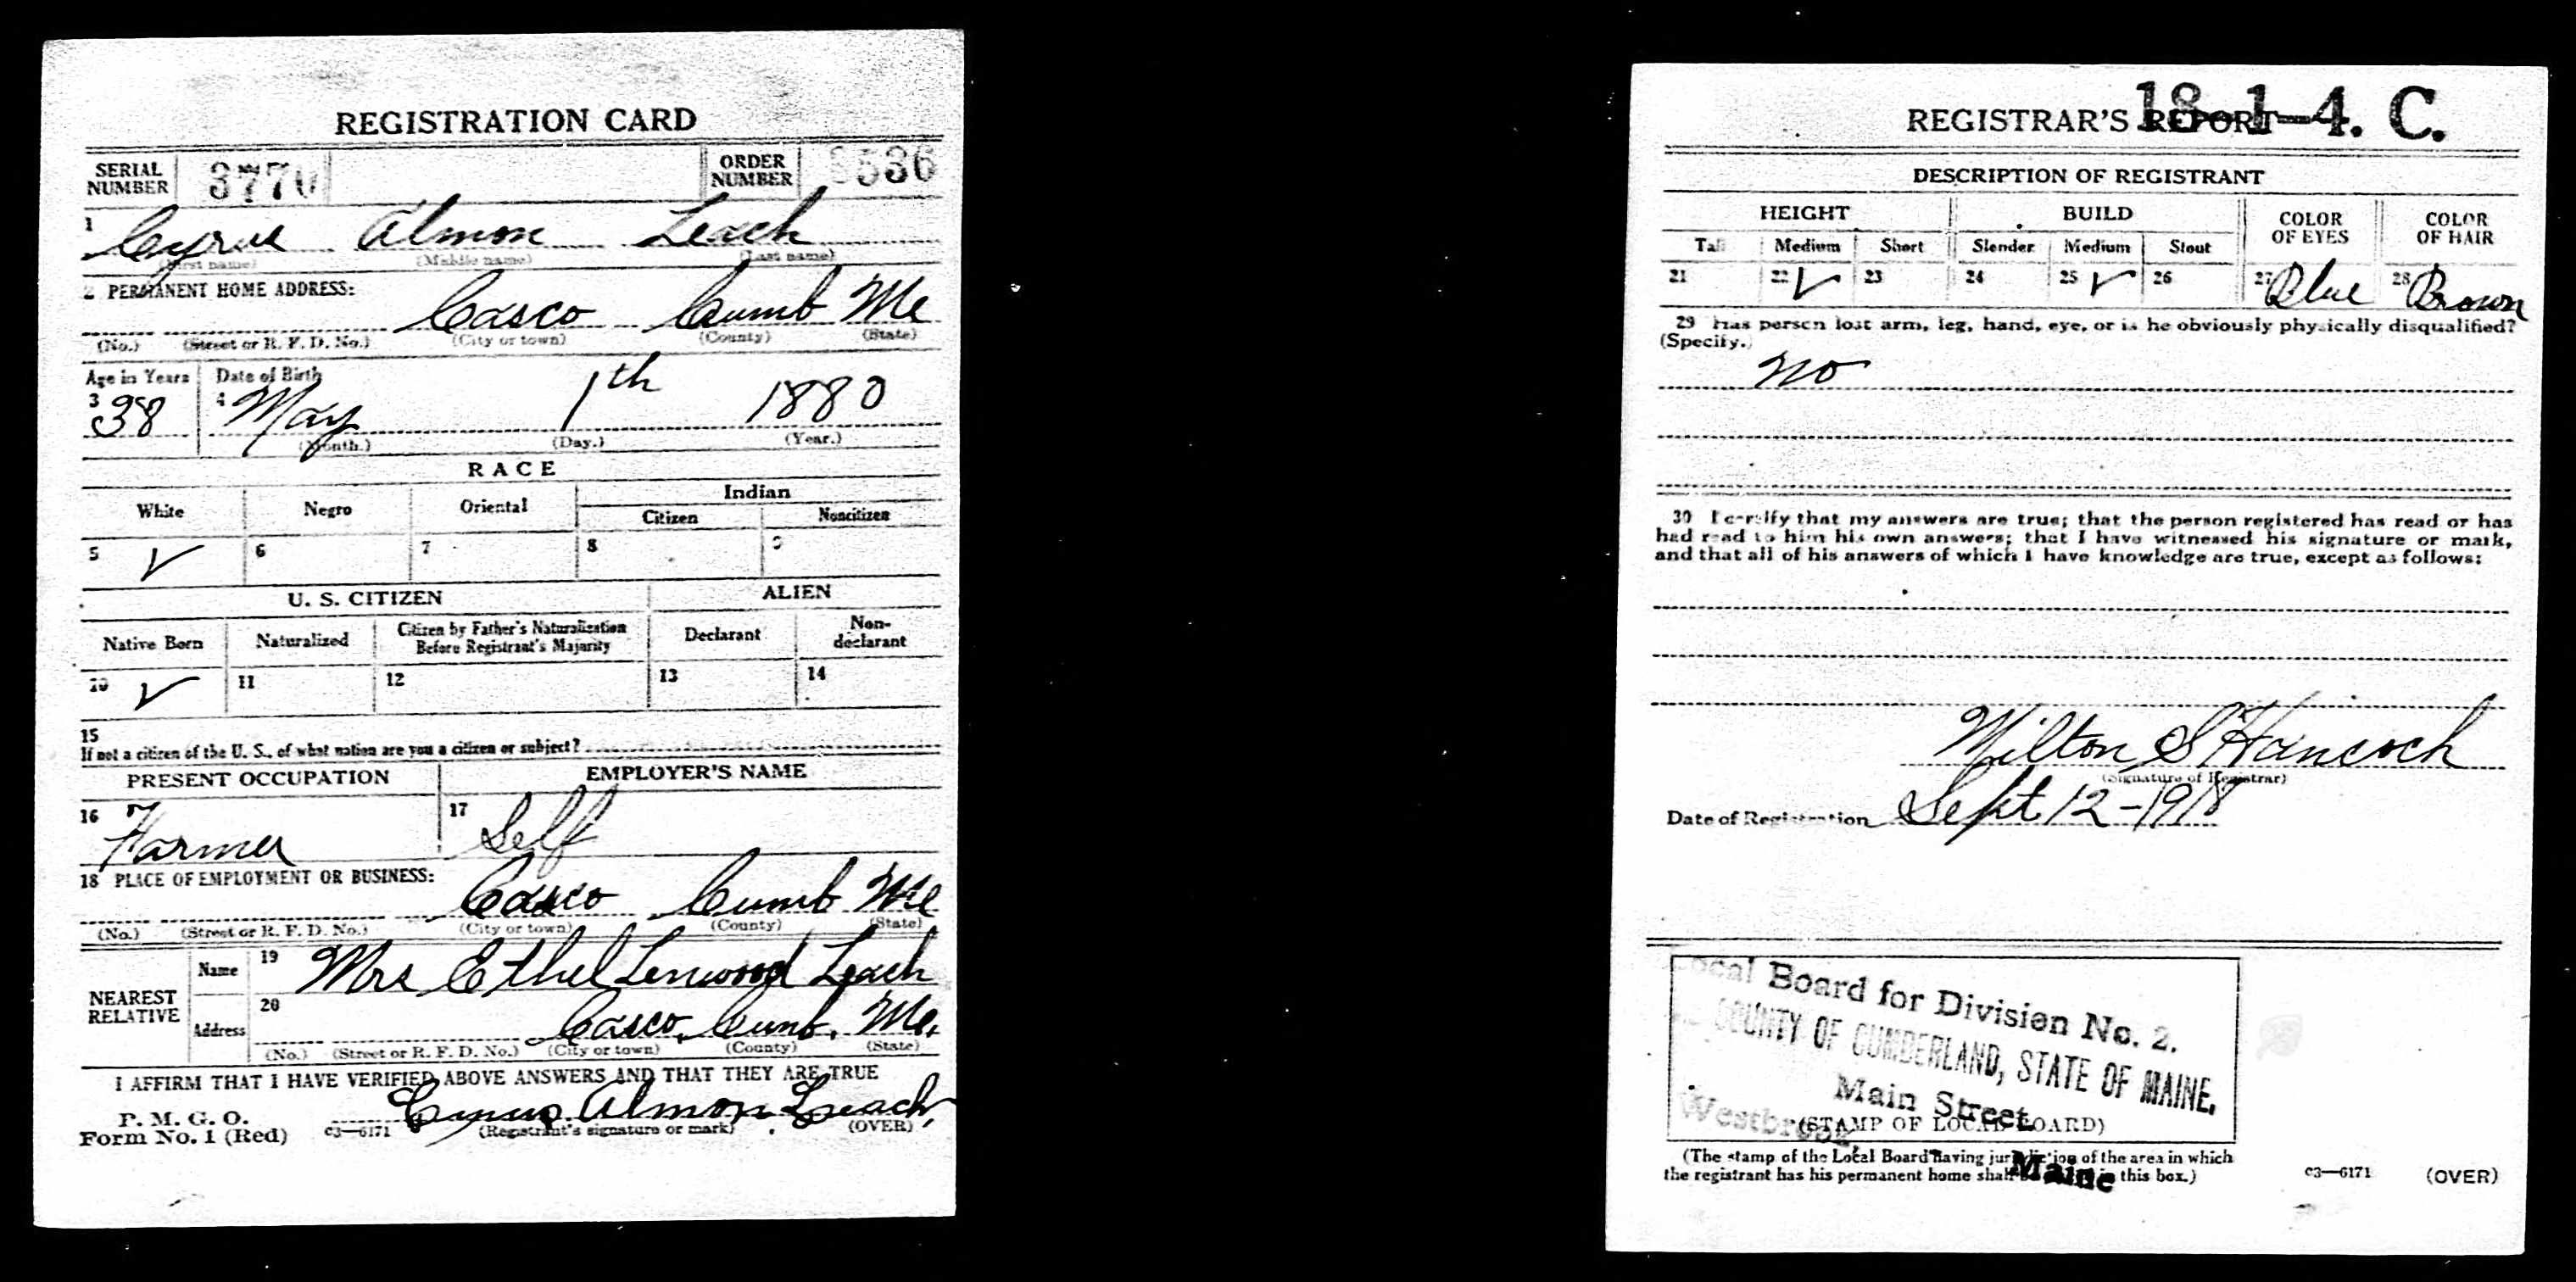 REGISTRATION CARD
SERIAL NUMBER 3770 ORDER NUMBER 536
1 Cyrus Almon Leach
(First name) (Middle name) (Last name)
2 PERMANENT HOME ADDRESS:
Casco Cumb Me
(No.) (Street or R. F. D. No.) (City or town) (County) (State)
Age in Years Date of Birth
3 38 4 May 1th 1880
(Month.) (Day.) (Year.)
RACE
White Negro Oriental Indian
Citizen Noncitizen
5 ✓ 6 7 8 9
U. S. CITIZEN ALIEN
Native Born Naturalized Citizen by Father's Naturalization Before Registrant's Majority Declarant Non-declarant
10 ✓ 11 12 13 14
15
If not a citizen of the U. S., of what nation are you a citizen or subject?
PRESENT OCCUPATION EMPLOYER'S NAME
16 Farmer 17 Self
18 PLACE OF EMPLOYMENT OR BUSINESS:
Casco Cumb Me
(No.) (Street or R. F. D. No.) (City or town) (County) (State)
NEAREST RELATIVE
Name 19 Mrs Ethel Lenwood Leach
Address 20 Casco, Cumb, Me,
(No.) (Street or R. F. D. No.) (City or town) (County) (State)
I AFFIRM THAT I HAVE VERIFIED ABOVE ANSWERS AND THAT THEY ARE TRUE
P. M. G. O.
Form No. 1 (Red) c3—6171 Cyrus Almon Leach,
(Registrant's signature or mark) (OVER)
18-1-4. C.
REGISTRAR'S REPORT
DESCRIPTION OF REGISTRANT
HEIGHT BUILD COLOR OF EYES COLOR OF HAIR
Tall Medium Short Slender Medium Stout
21 22 ✓ 23 24 25 ✓ 26 27 Blue 28 Brown
29 Has person lost arm, leg, hand, eye, or is he obviously physically disqualified?
(Specify.)
No
30 I certify that my answers are true; that the person registered has read or has
had read to him his own answers; that I have witnessed his signature or mark,
and that all of his answers of which I have knowledge are true, except as follows:
Milton S Hancock
(Signature of Registrar)
Date of Registration Sept 12-1918
Local Board for Division No. 2.
COUNTY OF CUMBERLAND, STATE OF MAINE.
Main Street
Westbrook,
(STAMP OF LOCAL BOARD)
Maine
(The stamp of the Local Board having jurisdiction of the area in which
the registrant has his permanent home shall be placed in this box.)
c3—6171 (OVER)